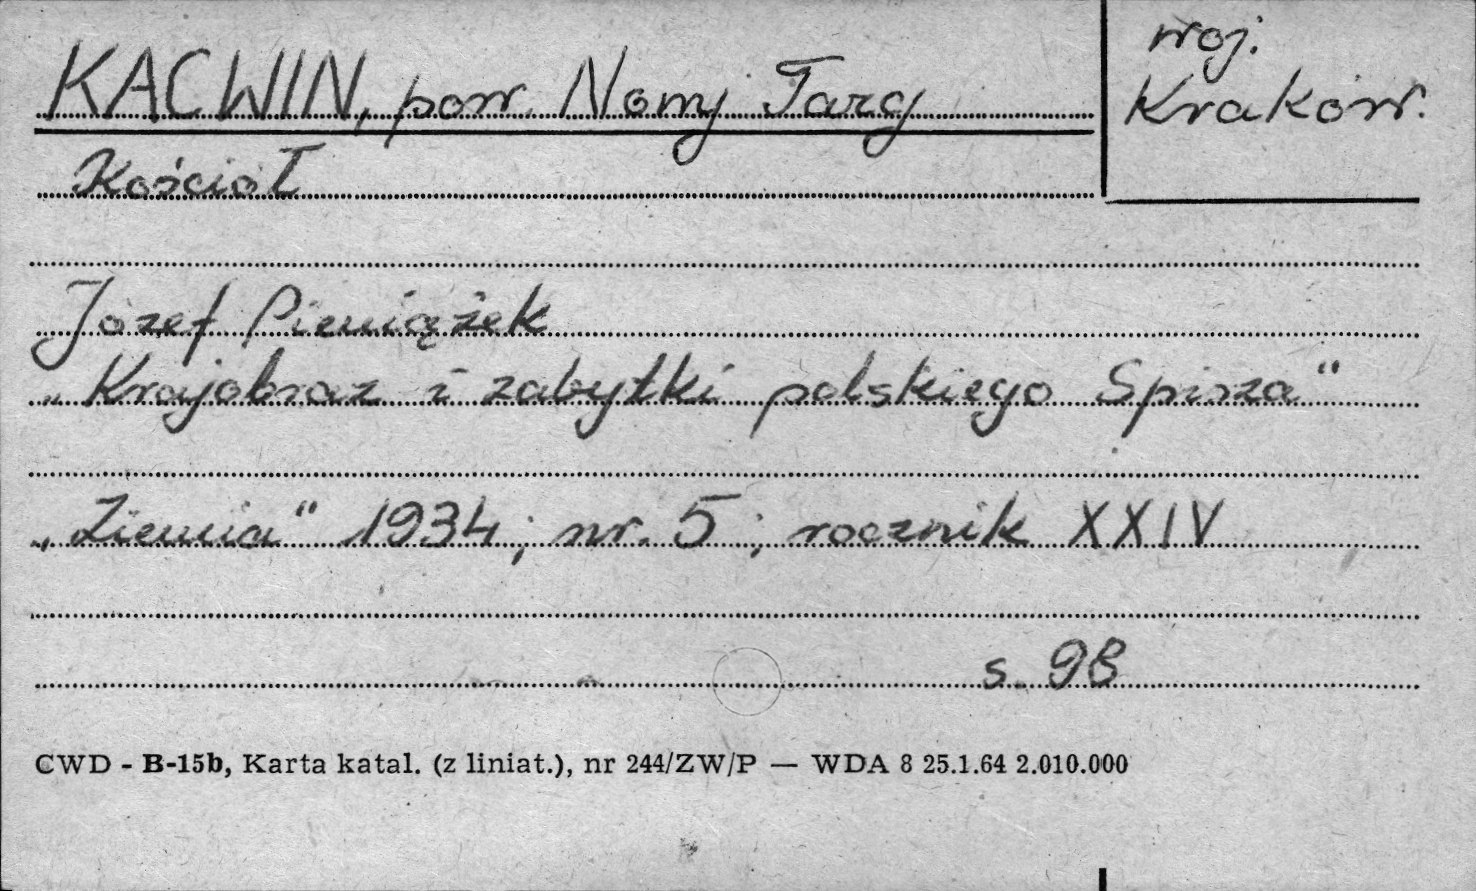 KACWIN, pow. Nowy Targ
woj.
Kraków.
Kościół
Józef Pieniążek
„Krajobraz i zabytki polskiego Spisza"
„Ziemia" 1934; nr. 5; rocznik XXIV
s. 98
CWD - B-15b, Karta katal. (z liniat.), nr 244/ZW/P — WDA 8 25.1.64 2.010.000